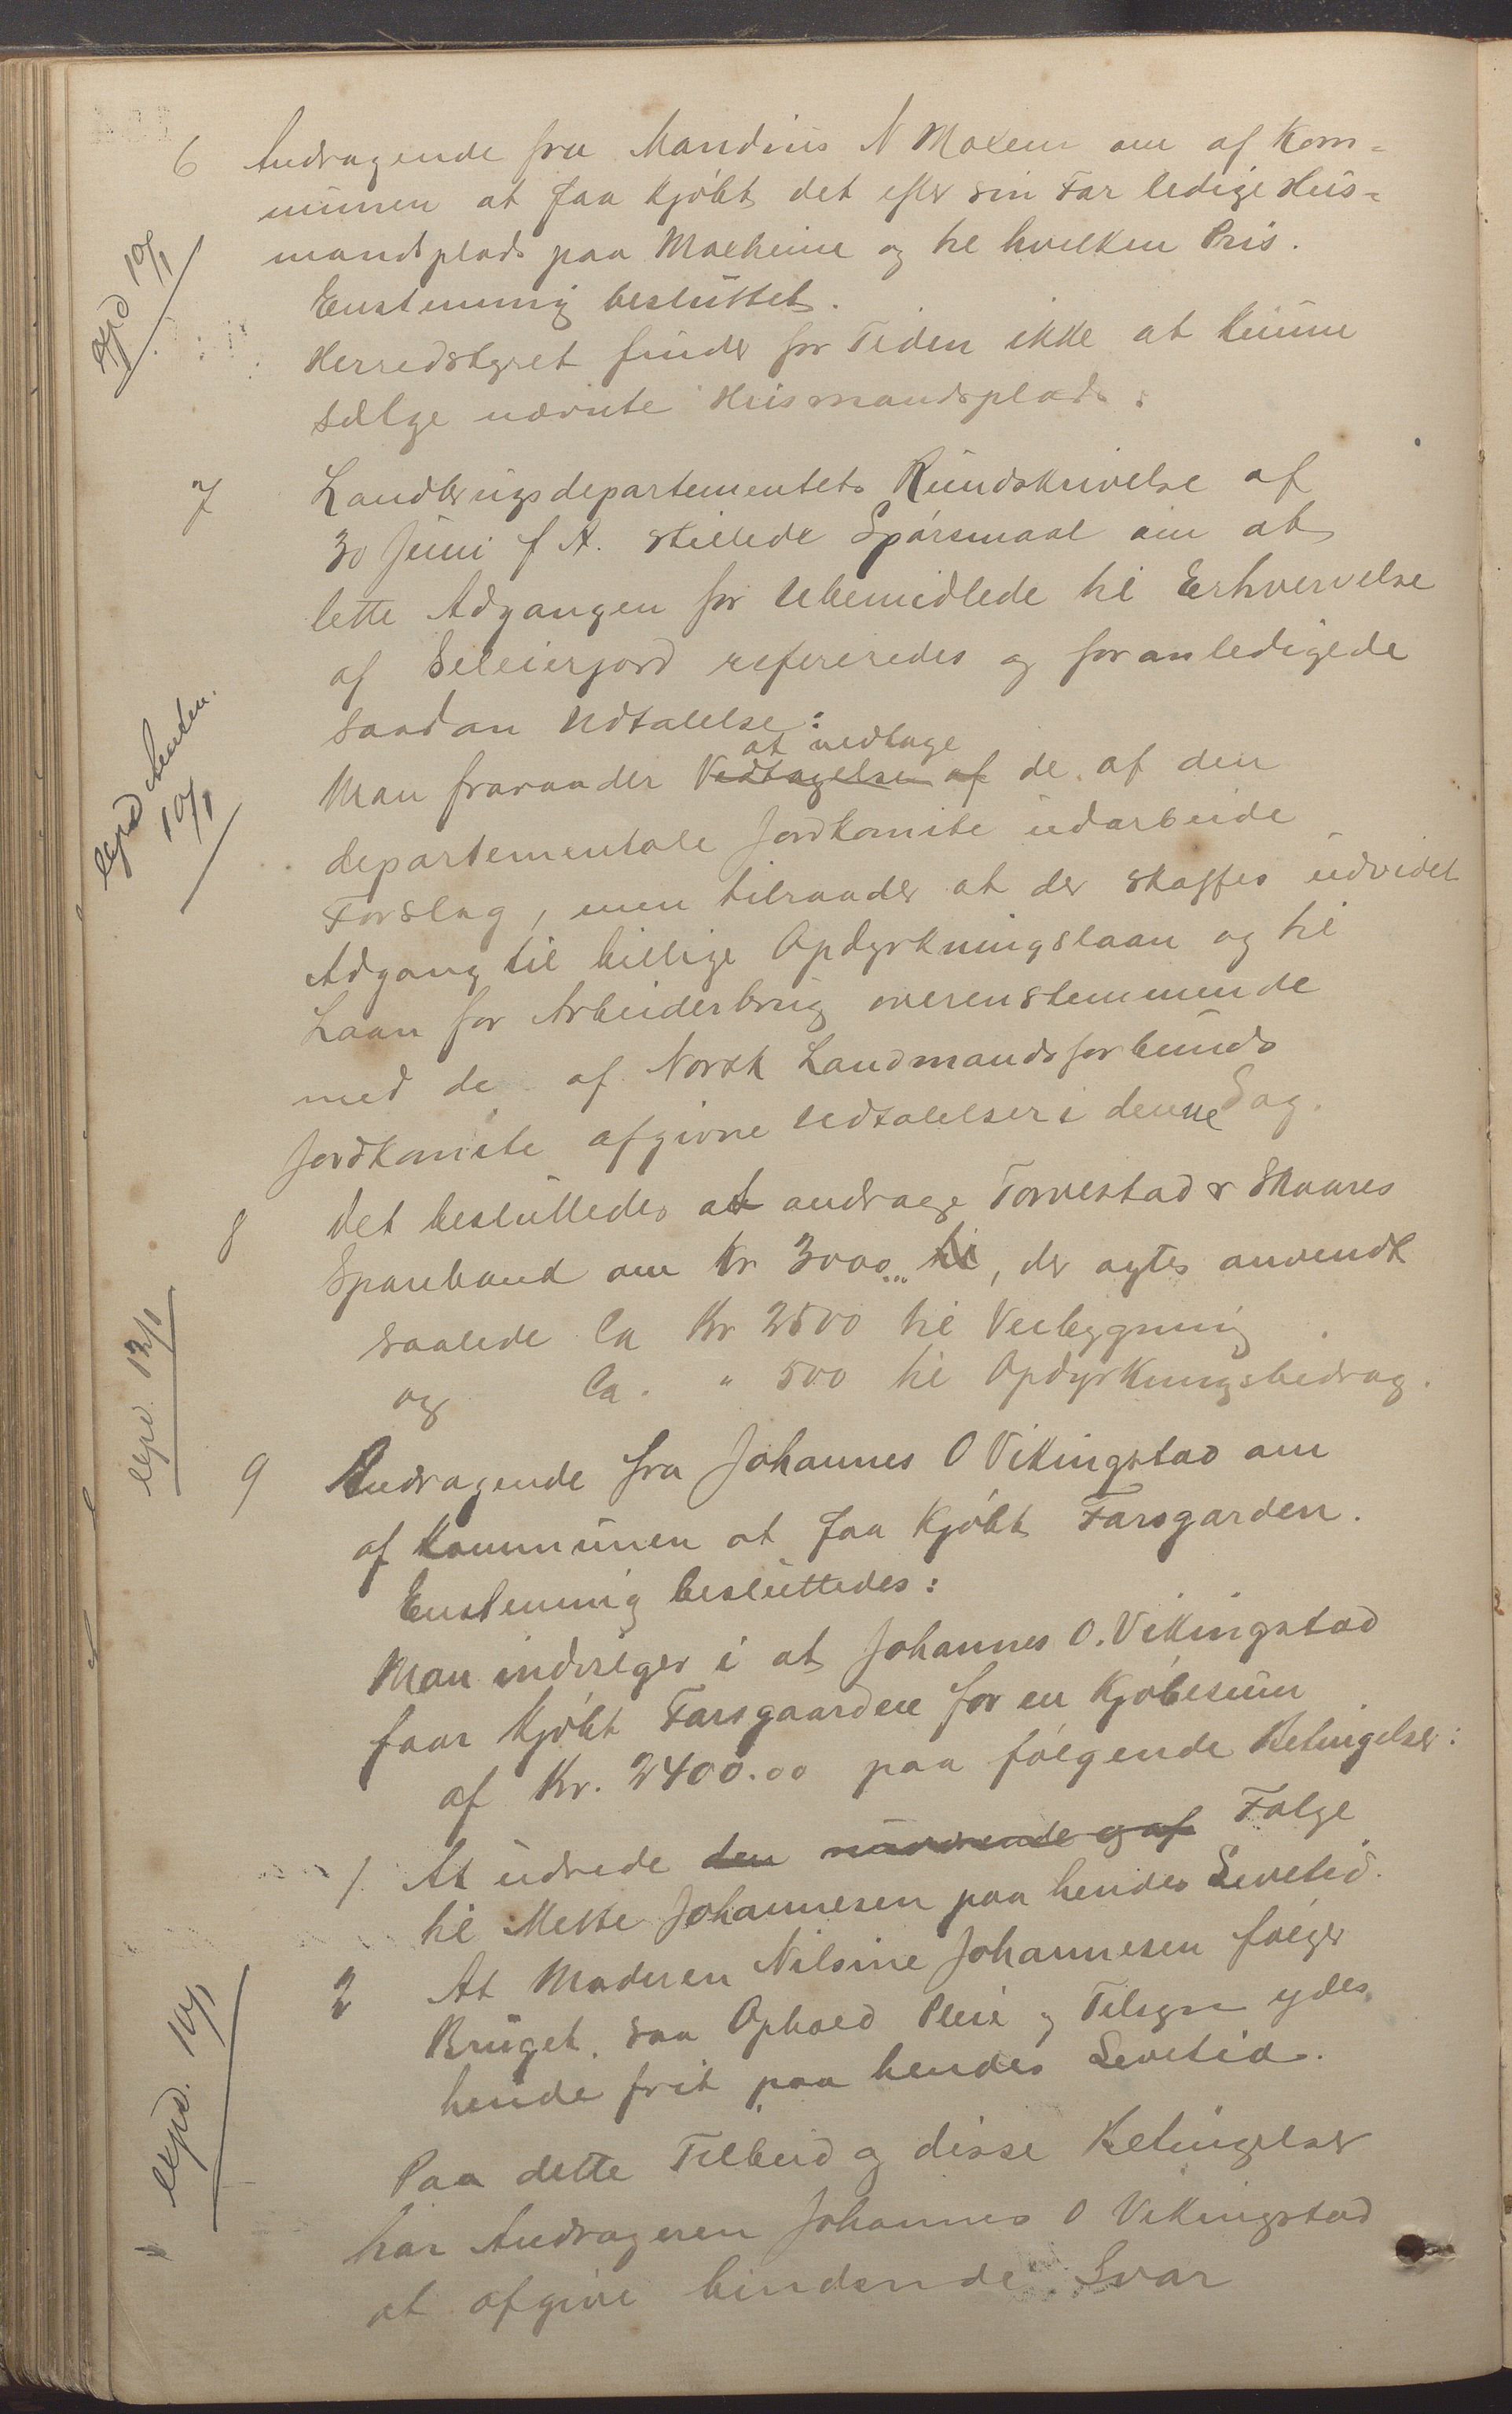 6 Andragende fra Mandius N Moxeim om af Kom-
munen at faa kjøbt det efter sin Far ledige Hus-
mandsplads paa Moxheim og til hvilken Pris.
expd 10/1
Enstemmig besluttet.
Herredstyret finder for Tiden ikke at kunne
sælge nævnte Husmandsplads.
7 Landbrugsdepartementets Rundskrivelse af
30 Juni f A. stillede Spørsmaal om at
lette Adgangen for Ubemidlede til Erhvervelse
af Seleierjord refereredes og foranledigede
saadan Udtalelse:
at vedtage
Man fraraader Vedtagelsen af de af den
expd Amten. 10/1
departementale Jordkomite udarbeide
Forslag, men tilraader at der skaffes udvidet
Adgang til billige Opdyrkningslaan og til
Laan for Arbeiderbrug overenstemmende
med de af Norsk Landmandsforbunds
Jordkomite afgivne Udtalelser i denne Sag.
8 Det besluttedes at andrage Torvestad & Skaares
Sparebank om Kr 3000... til, der agtes anvendt
saalede Ca Kr 2500 til Veibygning
expd. 12/1
og Ca. " 500 til Opdyrkningsbedrag.
9 Andragende fra Johannes O Vikingstad om
af Kommunen at faa kjøbt Farsgarden.
Enstemmig besluttedes:
Man indvilger i at Johannes O. Vikingstad
faar kjøbt Farsgaarden for en Kjøbesum
af Kr. 2400.00 paa følgende Betingelser:
1. At udrede den nuværende og af Følge
til Mette Johannesen paa hendes Levetid.
2 At Moderen Nilsine Johannesen følger
Bruget, saa Ophold Pleie og Tilsyn ydes
expd. 10/1
hende frit paa hendes Levetid.
Paa dette Tilbud og disse Betingelser
har Andrageren Johannes O Vikingstad
at afgive bindende Svar